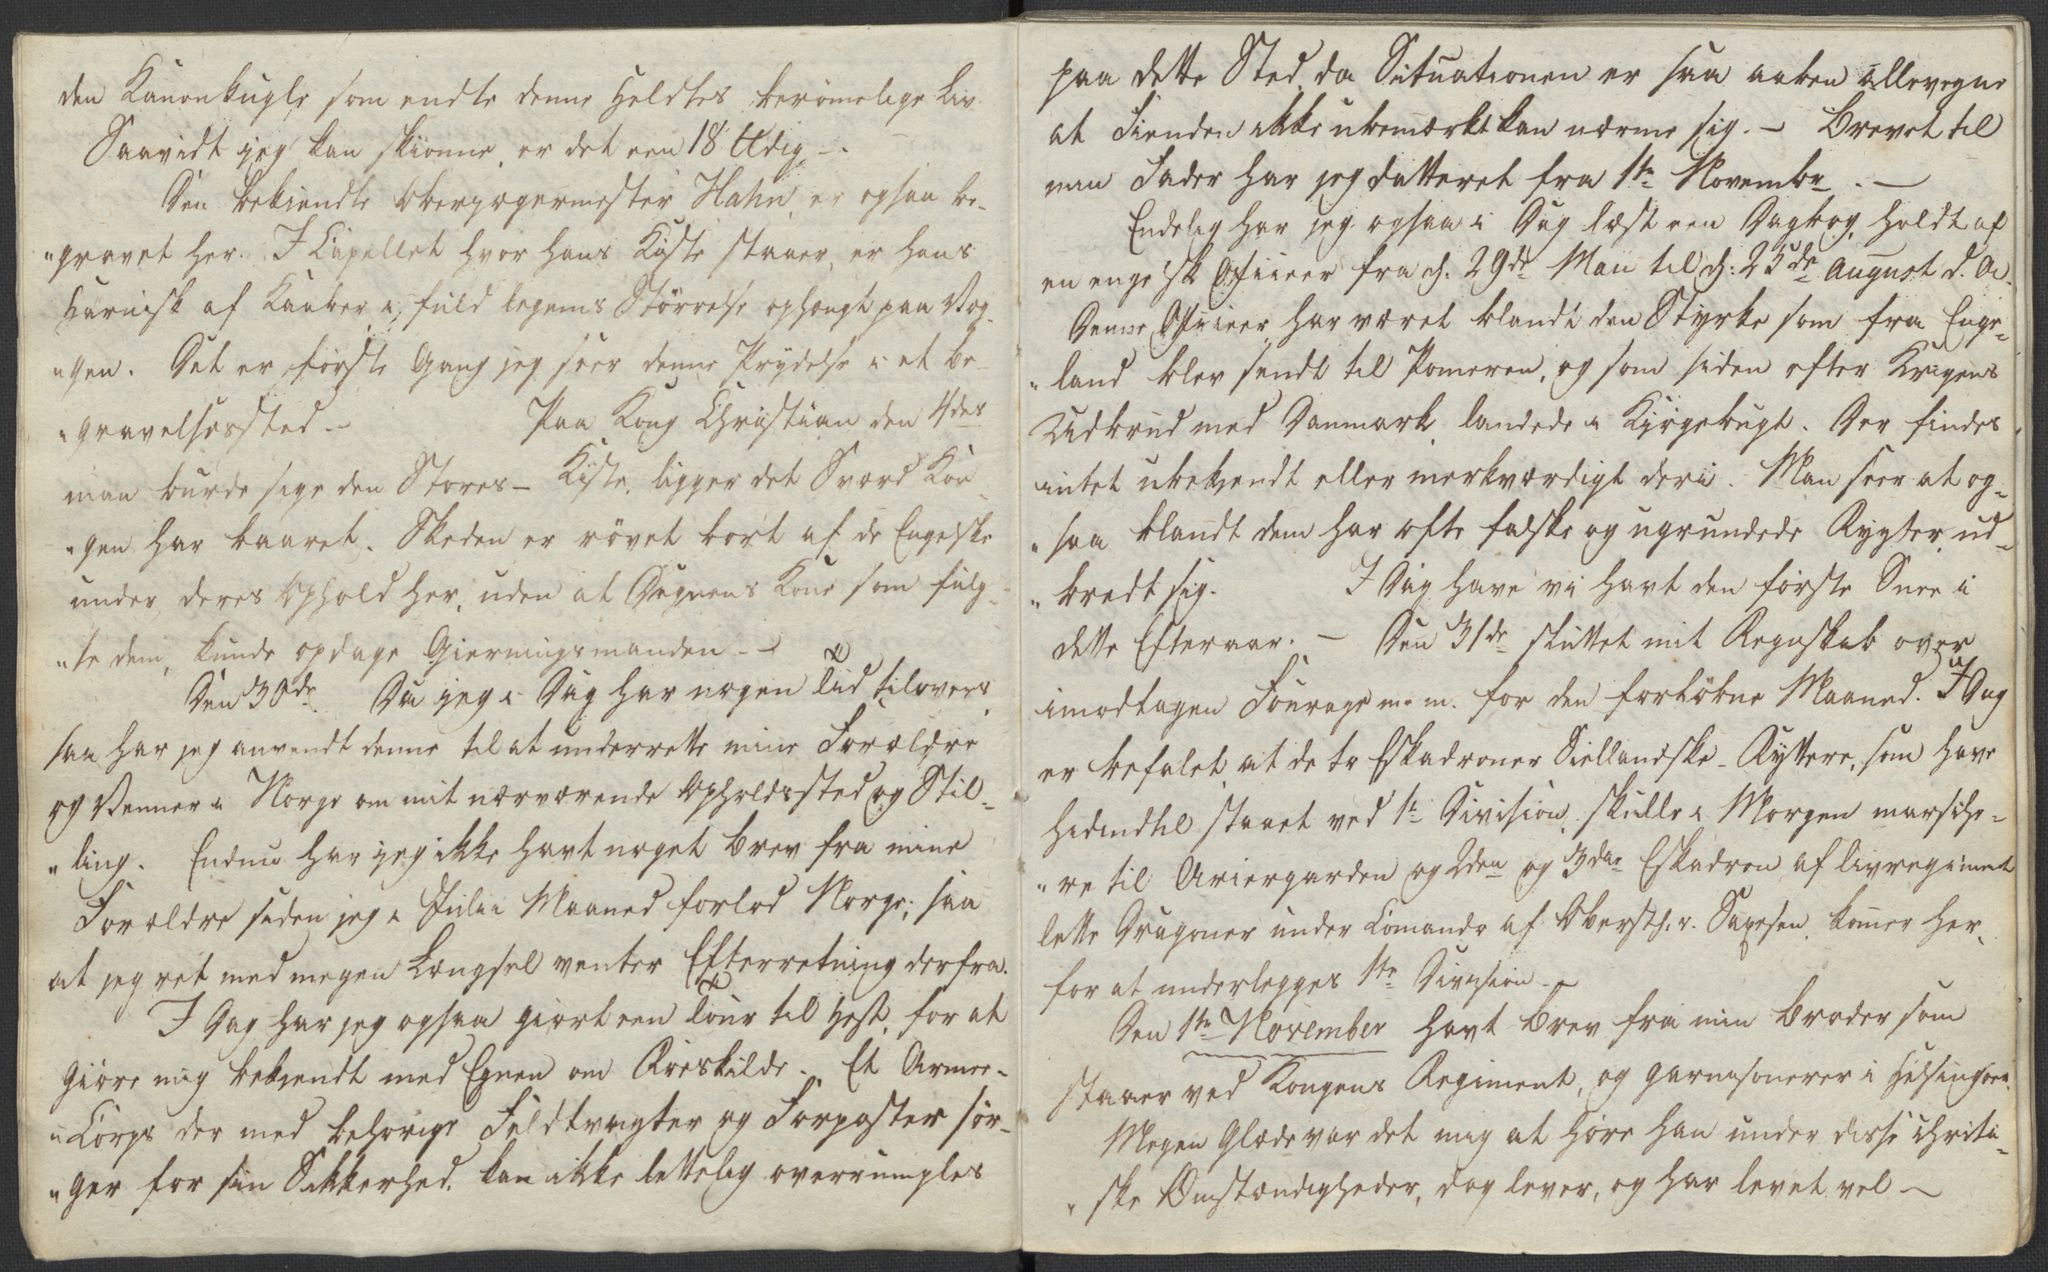 den Kanonkugle, som endte denne Heldtes berömelige Liv.
Saavidt jeg kan skiønne, er det een 18 ℔dig —.
Den bekiendte Oberjægermester Hahn, er ogsaa be-
"gravet her. I Capellet hvor hans Kiste staaer, er hans
Harnisk af Kaaber i fuld legems Störrelse ophængt paa Væg-
"gen. Det er förste Gang jeg seer denne Prydelse i et be-
"gravelsessted — Paa Kong Christian den 4des
man burde sige den Stores — Kiste, ligger det Sværd Kon-
"gen har baaret. Skeden er rövet bort af de Engelske
under deres Ophold her, uden at Degnens Kone som fulg-
"te dem, kunde opdage Gierningsmanden. —
Den 30de. Da jeg i Dag har nogen Tid tilovers,
saa har jeg anvendt denne til at underrette mine Forældre
og Venner i Norge om mit nærværende Opholdssted og Stil-
"ling. Endnu har jeg ikke havt noget Brev fra mine
Forældre siden jeg i Julii Maaned forlod Norge; saa
at jeg ret med megen Længsel venter Efterretning derfra.
I Dag har jeg ogsaa giort een Tour til Hest, for at
giöre mig bekjendt med Egnen om Röeskilde. Et Armee-
"Corps der med behörige Feldtvagter og Forposter sör-
"ger for sin Sikkerhed, kan ikke lettelig overrumples
paa dette Sted, da Situationen er saa aaben allevegne
at Fienden ikke ubemærkt kan nærme sig. — Brevet til
min Fader har jeg datteret fra 1te Novembr. —
Endelig har jeg ogsaa i Dag læst een Dagbog, holdt af
en engelsk Officeer fra d. 29de Maii til d: 23de August d. A.
Denne Officeer har været blandt den Styrke som fra Enge-
"land blev sendt til Pomeren, og som siden efter Krigens
Udbrud med Danmark, landede i Kjögebugt. Der findes
intet ubekjendt eller merkværdigt deri. Man seer at og-
"saa blandt dem har ofte falske og ugrundede Rygter ud-
"bredt sig. I Dag have vi havt den förste Snee i
dette Efteraar. — Den 31de sluttet mit Regnskab over
imodtagen Fourage m. m. for den forlöbne Maaned. I Dag
er befalet at de to Eskadroner Siellandske-Ryttere, som have
hidindtil staaet ved 1te Division, skulle i Morgen marsche-
"re til Ariergarden og 2den og 3die Eskadron af Livregiment
lette Dragoner under Comando af Oberstl. v. Saxesen, komer her,
for at underlegges 1te Division —
Den 1te November havt Brev fra min Broder som
staaer ved Kongens Regiment, og garnisonerer i Helsingöer.
Megen Glæde var det mig at höre han under disse chriti-
"ske Omstændigheder, dog lever, og har levet vel —